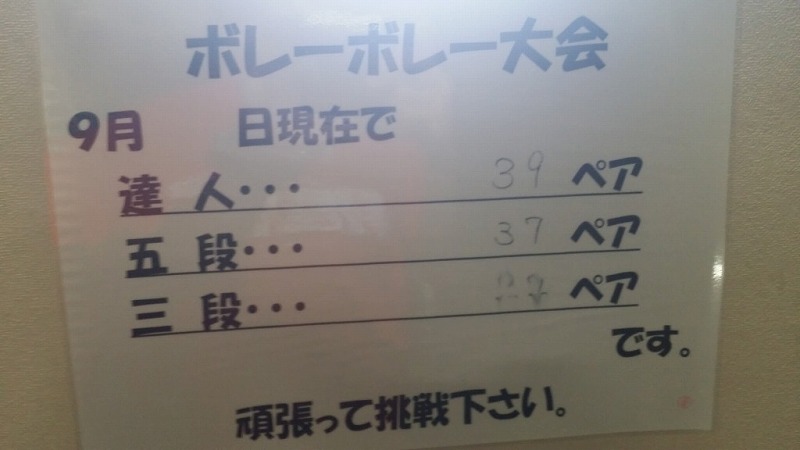 ボレーボレー大会
9月 日現在で
達人・・・ 39 ペア
五段・・・ 37 ペア
三段・・・ ペア
です。
頑張って挑戦下さい。